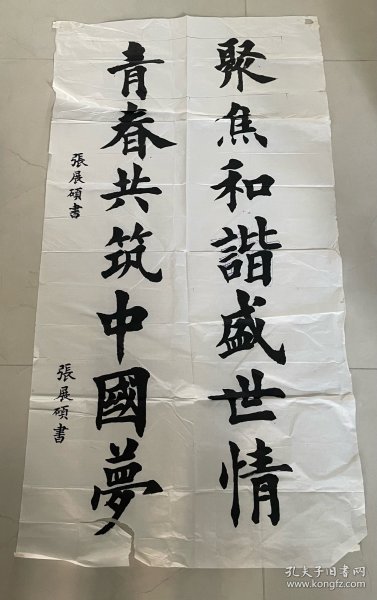 聚焦和諧盛世情
青春共筑中國夢
張展碩書
張展碩書
孔夫子旧书网
www.kongfz.com